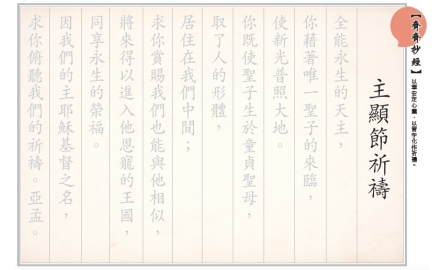 【齊齊抄經】
以筆安定心靈，以習字化作祈禱。
主顯節祈禱
全能永生的天主，
你藉著唯一聖子的來臨，
使新光普照大地。
你既使聖子生於童貞聖母，
取了人的形體，
居住在我們中間；
求你賞賜我們也能與他相似，
將來得以進入他恩寵的王國，
同享永生的榮福。
因我們的主耶穌基督之名，
求你俯聽我們的祈禱。亞孟。